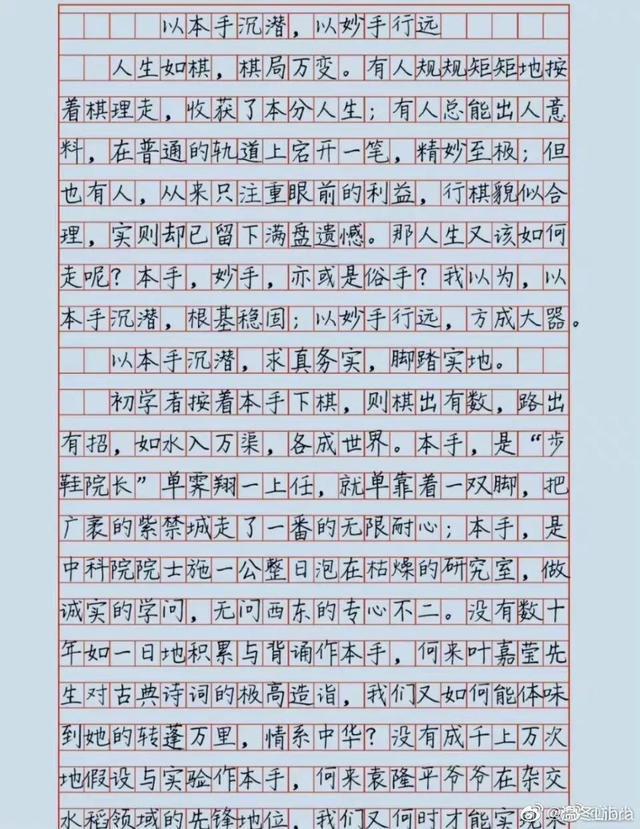 以本手沉潜，以妙手行远
人生如棋，棋局万变。有人规规矩矩地按
着棋理走，收获了本分人生；有人总能出人意
料，在普通的轨道上宕开一笔，精妙至极；但
也有人，从来只注重眼前的利益，行棋貌似合
理，实则却已留下满盘遗憾。那人生又该如何
走呢？本手，妙手，亦或是俗手？我以为，以
本手沉潜，根基稳固；以妙手行远，方成大器。
以本手沉潜，求真务实，脚踏实地。
初学者按着本手下棋，则棋出有数，路出
有招，如水入万渠，各成世界。本手，是“步
鞋院长”单霁翔一上任，就单靠着一双脚，把
广袤的紫禁城走了一番的无限耐心；本手，是
中科院院士施一公整日泡在枯燥的研究室，做
诚实的学问，无问西东的专心不二。没有数十
年如一日地积累与背诵作本手，何来叶嘉莹先
生对古典诗词的极高造诣，我们又如何能体味
到她的转蓬万里，情系中华？没有成千上万次
地假设与实验作本手，何来袁隆平爷爷在杂交
水稻领域的先锋地位，我们又何时才能实现